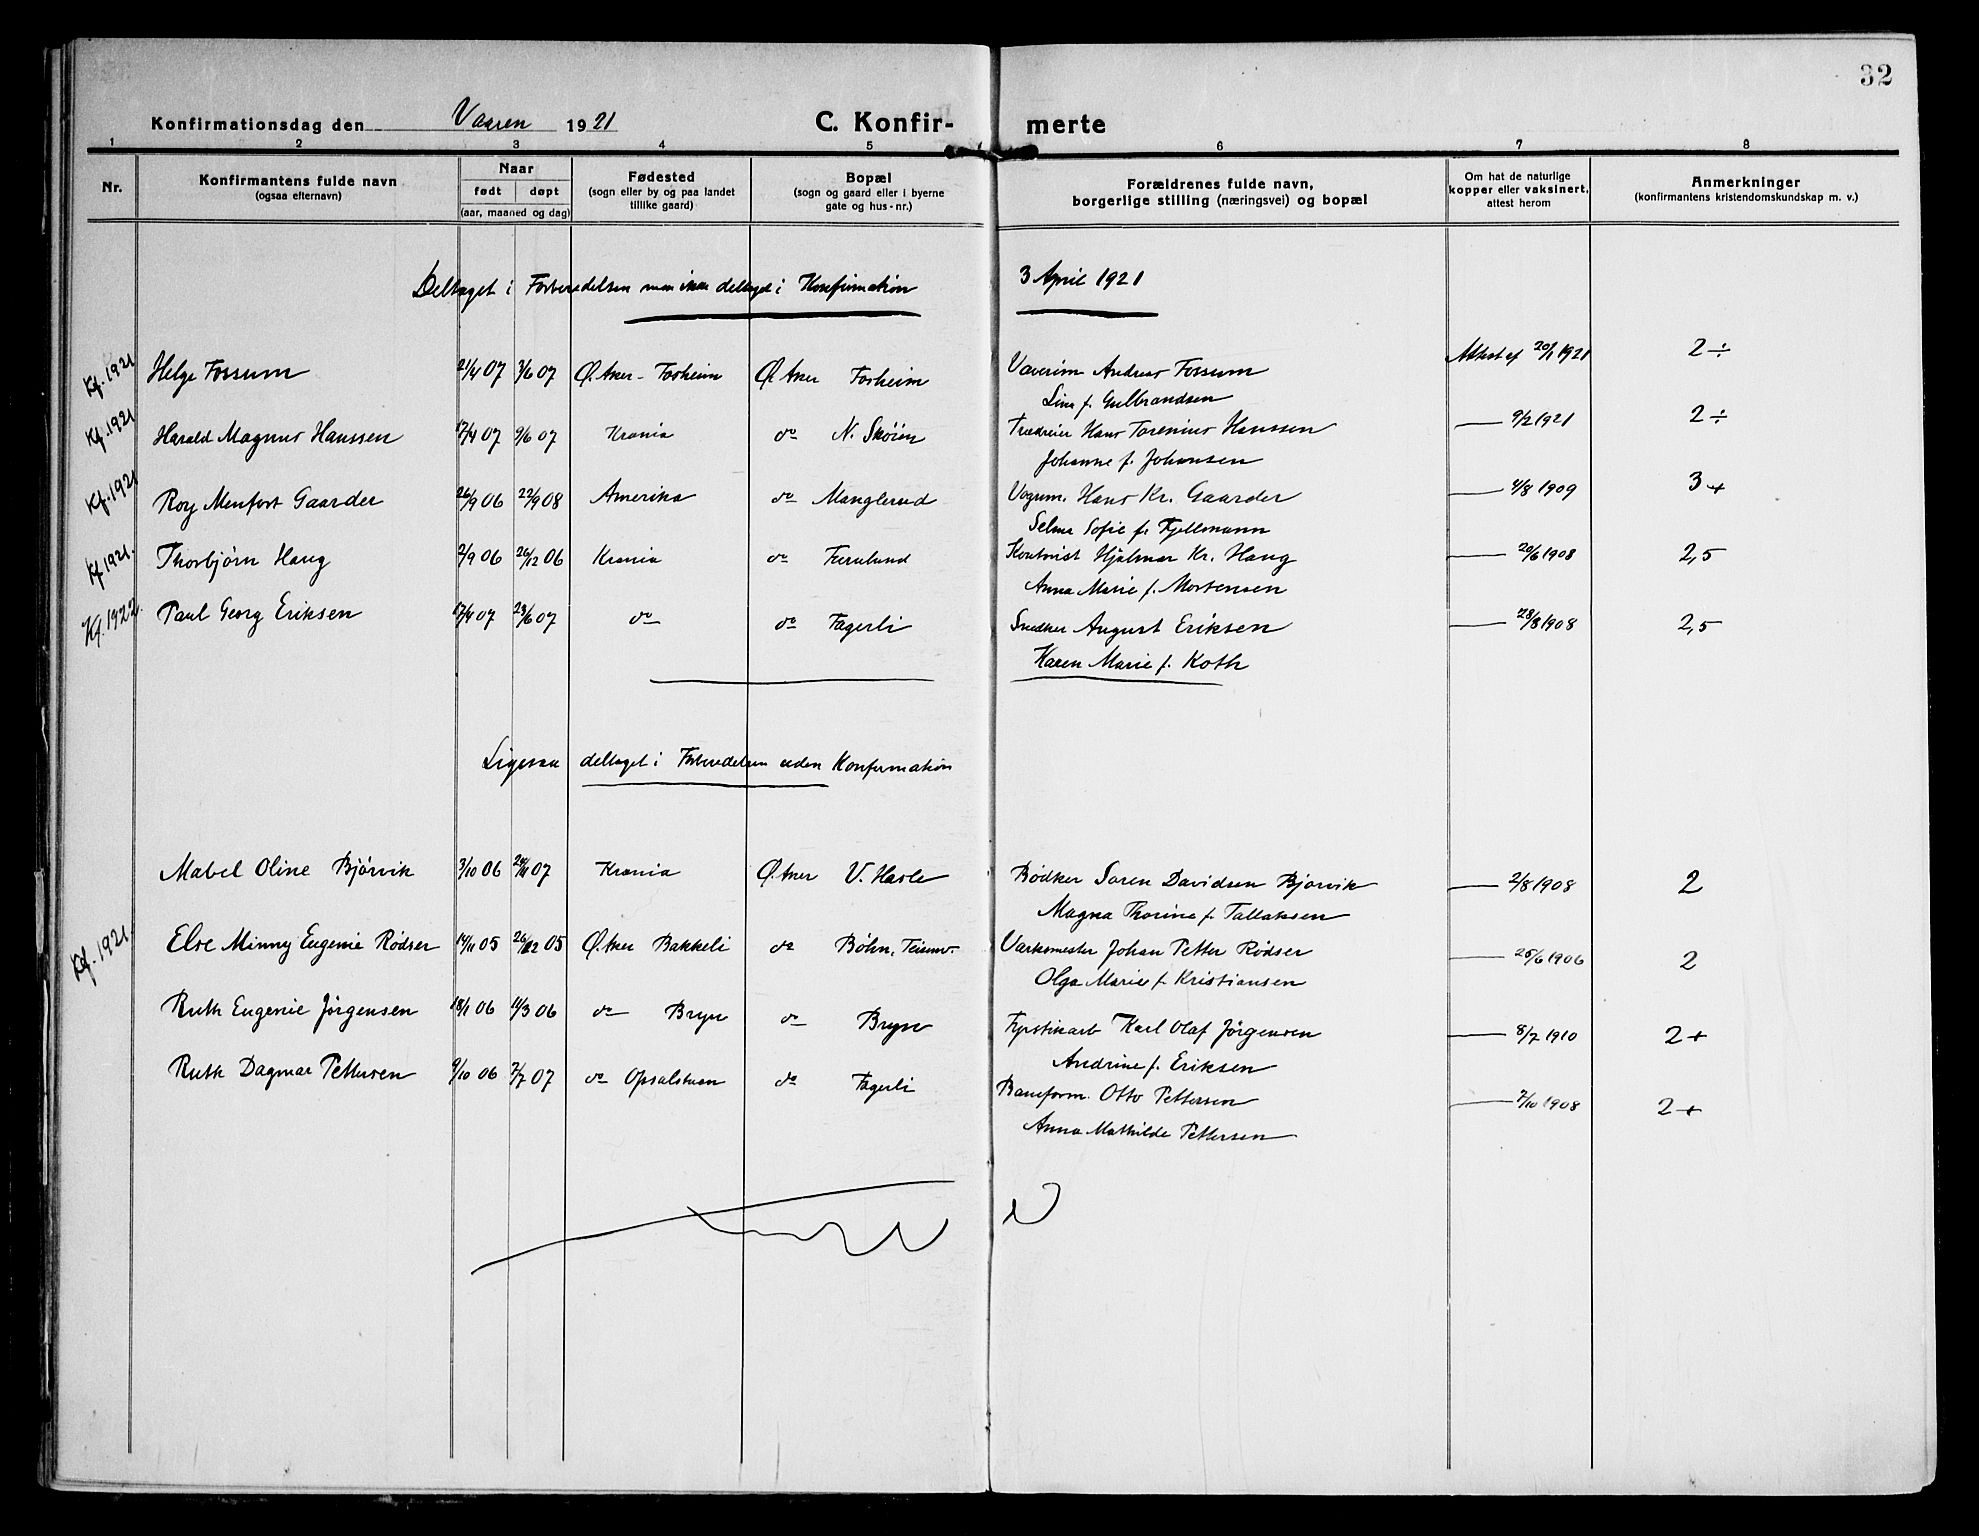 32
Konfirmationsdag den Vaaren 1921 C. Konfir- merte
1 2 3 4 5 6 7 8
Nr.
Konfirmantens fulde navn
(ogsaa efternavn)
Naar
født døpt
(aar, maaned og dag)
Fødested
(sogn eller by og paa landet
tillike gaard)
Bopæl
(sogn og gaard eller i byerne
gate og hus-nr.)
Forældrenes fulde navn,
borgerlige stilling (næringsvei) og bopæl
Om hat de naturlige
kopper eller vaksinert,
attest herom
Anmerkninger
(konfirmantens kristendomskundskap m. v.)
Deltaget i Forberedelsen men ikke deltaget i Konfirmation 3 April 1921
Kf. 1921 Helge Fossum 21/4 07 3/6 07 Ø. Aker - Forheim Ø. Aker Forheim Andreas Fossum Attest af 20/1 1921 2 ÷
Lina f. Gulbrandsen
Kf. 1921 Harald Magnus Hanssen 17/4 07 9/6 07 Krania do N. Skøien Trædreier Hans Torenius Hanssen — 9/2 1921 2 ÷
Johanne f. Johansen
Kf. 1921 Roy Menfort Gaarder 26/9 06 22/9 08 Amerika do Manglerud Vognm. Hans Kr. Gaarder — 4/8 1909 3 +
Selma Sofie f. Fjellmann
Kf 1921. Thorbjørn Haug 2/9 06 26/12 06 Krania do Furulund Kontorist Hjalmar Kr. Haug — 20/6 1908 2,5
Anna Marie f. Mortensen
Kf. 1922. Paul Georg Eriksen 17/4 07 23/6 07 do do Fagerli Snedker August Eriksen — 28/8 1908 2,5
Karen Marie f. Koth
Ligesaa deltaget i Forberedelsen uden Konfirmation
Mabel Oline Bjørvik 3/10 06 07 Krania Ø. Aker V. Hasle Bødker Soren Davidsen Bjørvik — 2/8 1908 2
Magna Thorine f. Tallaksen
Kf. 1921. Else Minny Eugenie Rødser 14/11 05 26/12 05 Ø. Aker Bakkeli do Bøhn, Teisenv. Værksmester Johan Petter Rødser — 25/6 1906 2
Olga Marie f. Kristiansen
Ruth Eugenie Jörgensen 18/1 06 11/3 06 do Bryn do Bryn Karl Olaf Jörgensen — 8/7 1910 2 +
Andrine f. Eriksen
Ruth Dagmar Pettersen 9/10 06 7/7 07 do Opsalstuen do Fagerli Baneform. Otto Pettersen — 7/10 1908 2 +
Anna Mathilde Pettersen